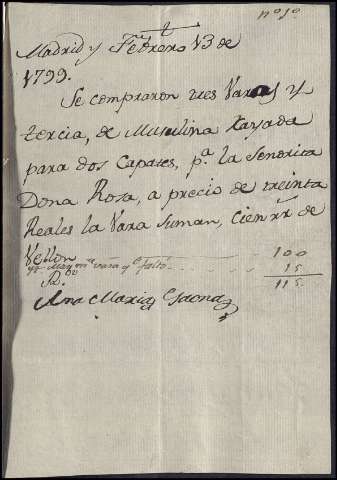 nº 90
Madrid y Febrero 13 de
1799.
Se compraron tres Varas y
tercia, de Musulina Rayada
para dos Capases, p.ª la Señorita
Dona Rosa, a precio de treinta
Reales la Vara Suman, Cien rr de
Vellon 100
Mas mª vara q.e faltó 15
R. 115
Ana Maria Gaona